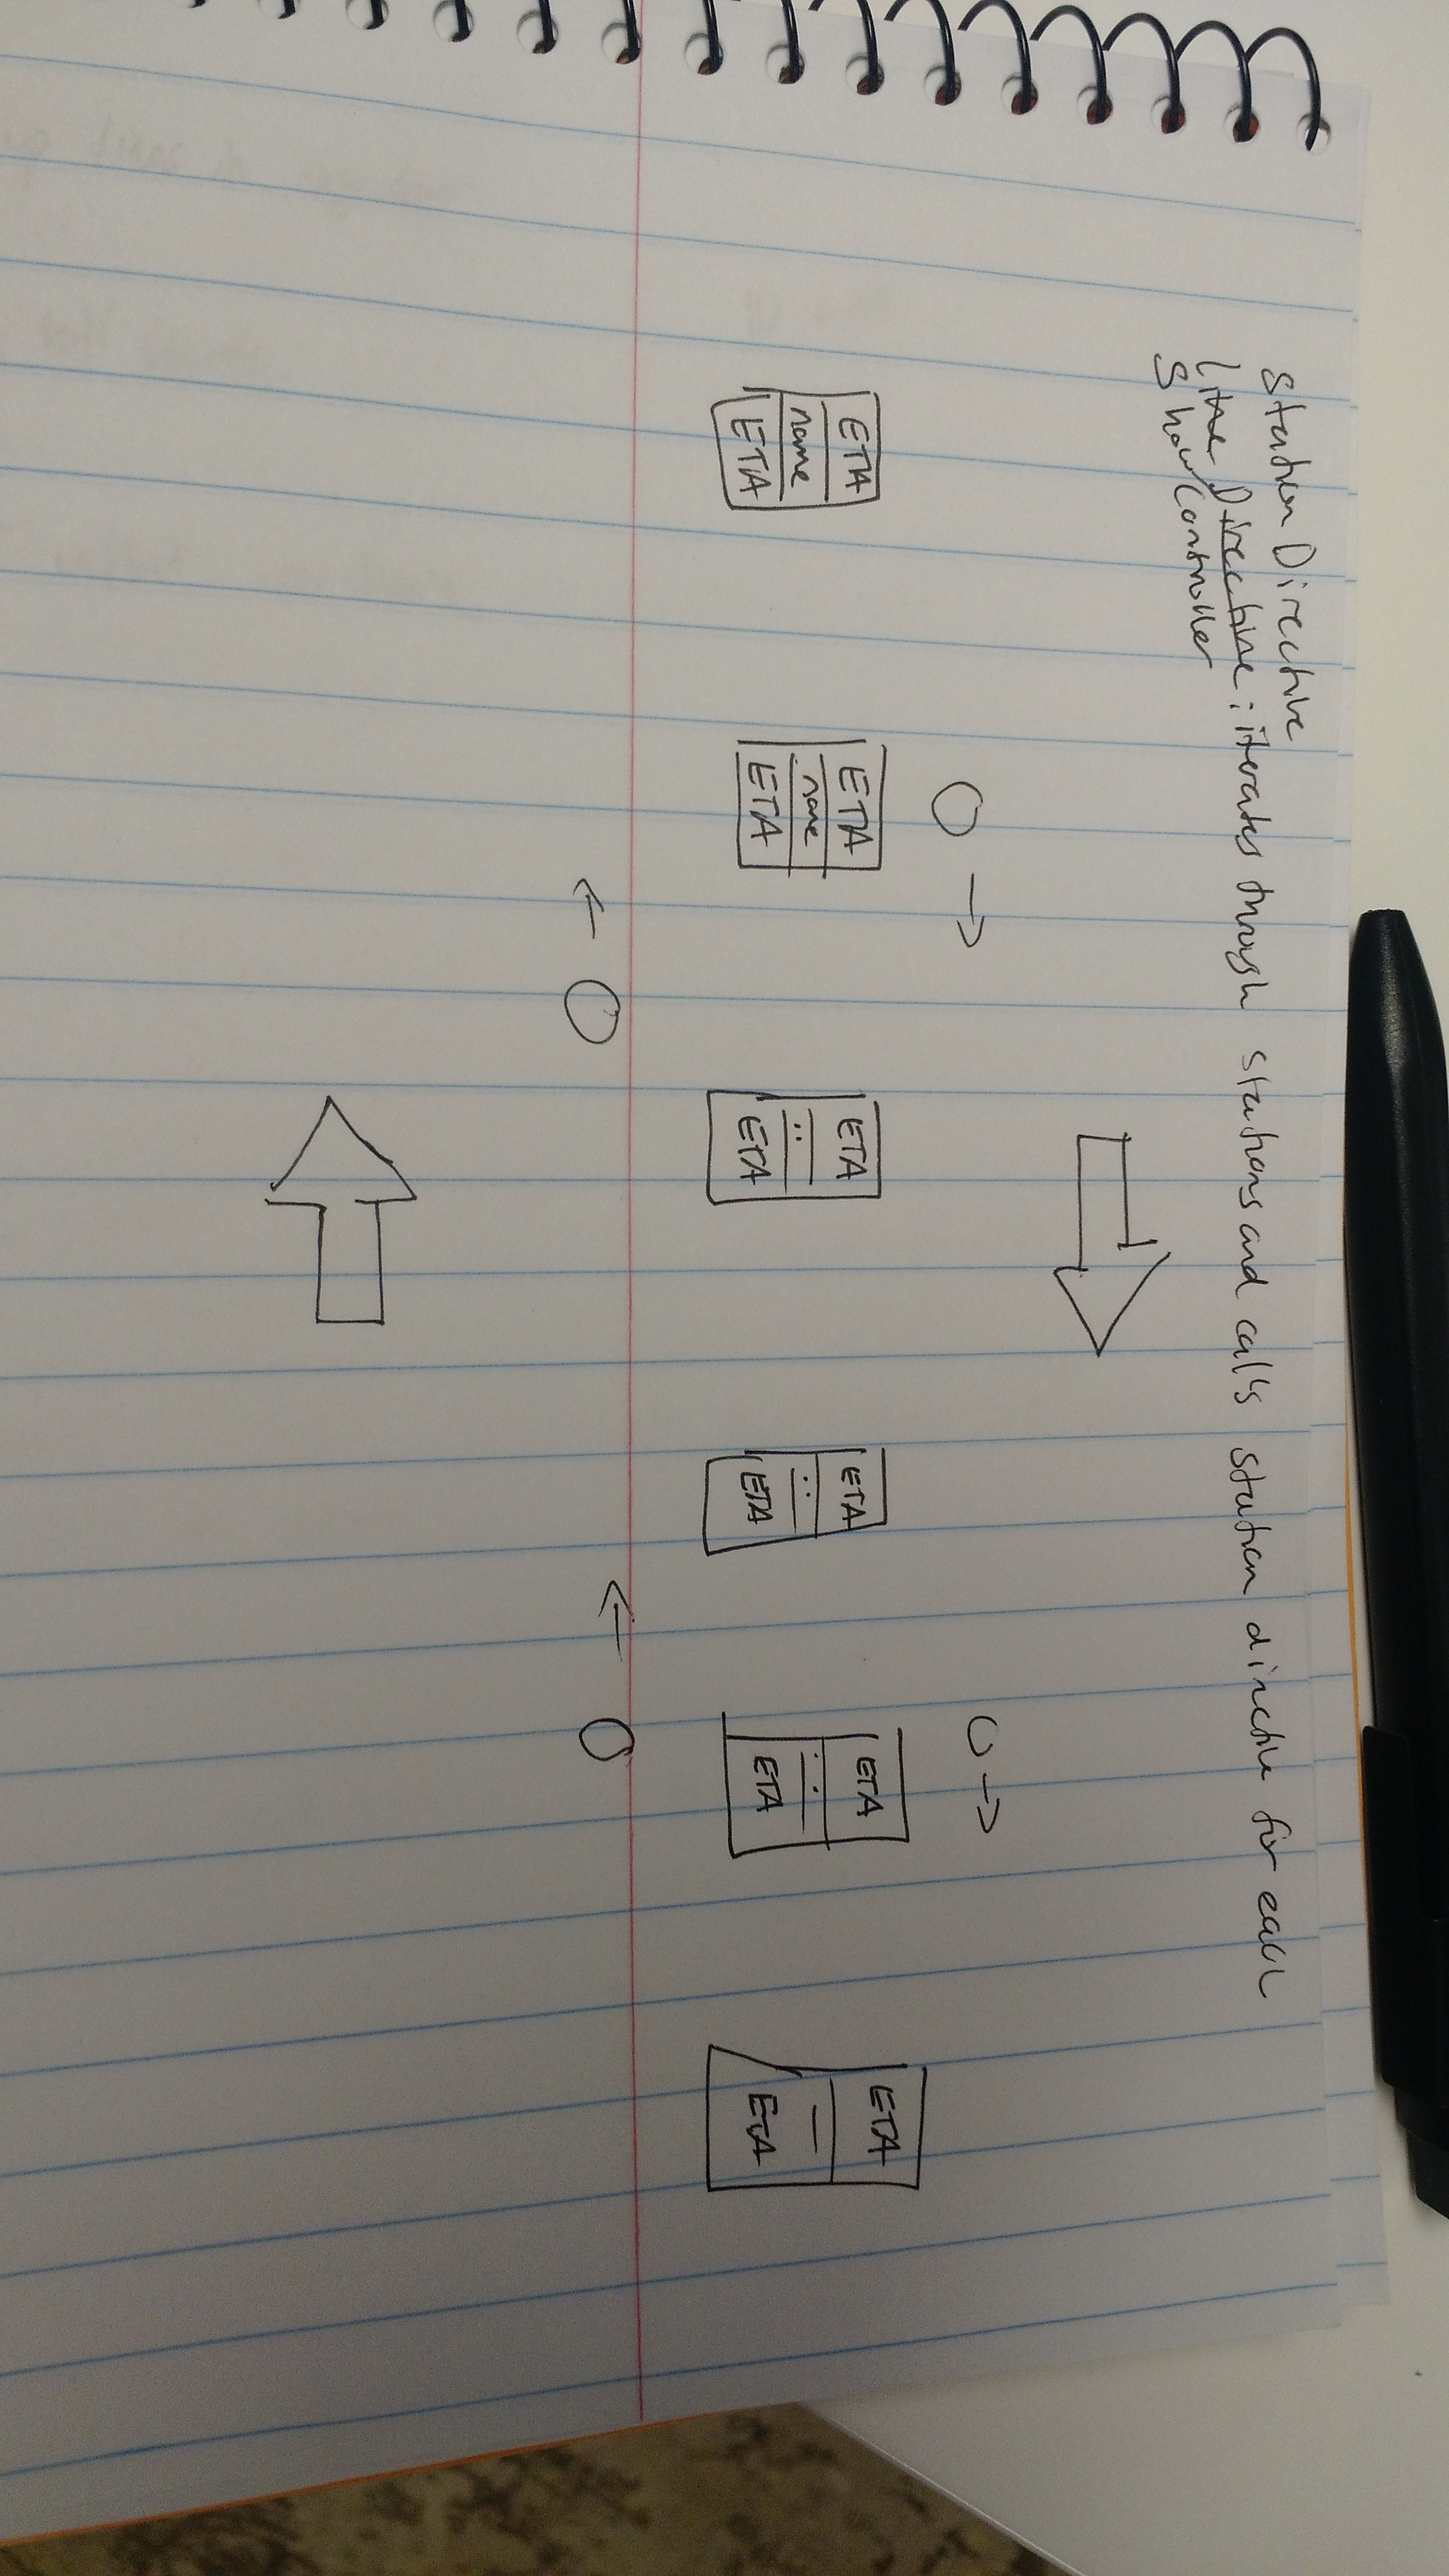 Station Directive
Line Directive: iterates through stations and calls station directive for each
Show Controller
ETA ETA ETA ETA ETA ETA
name name
ETA ETA ETA ETA ETA ETA